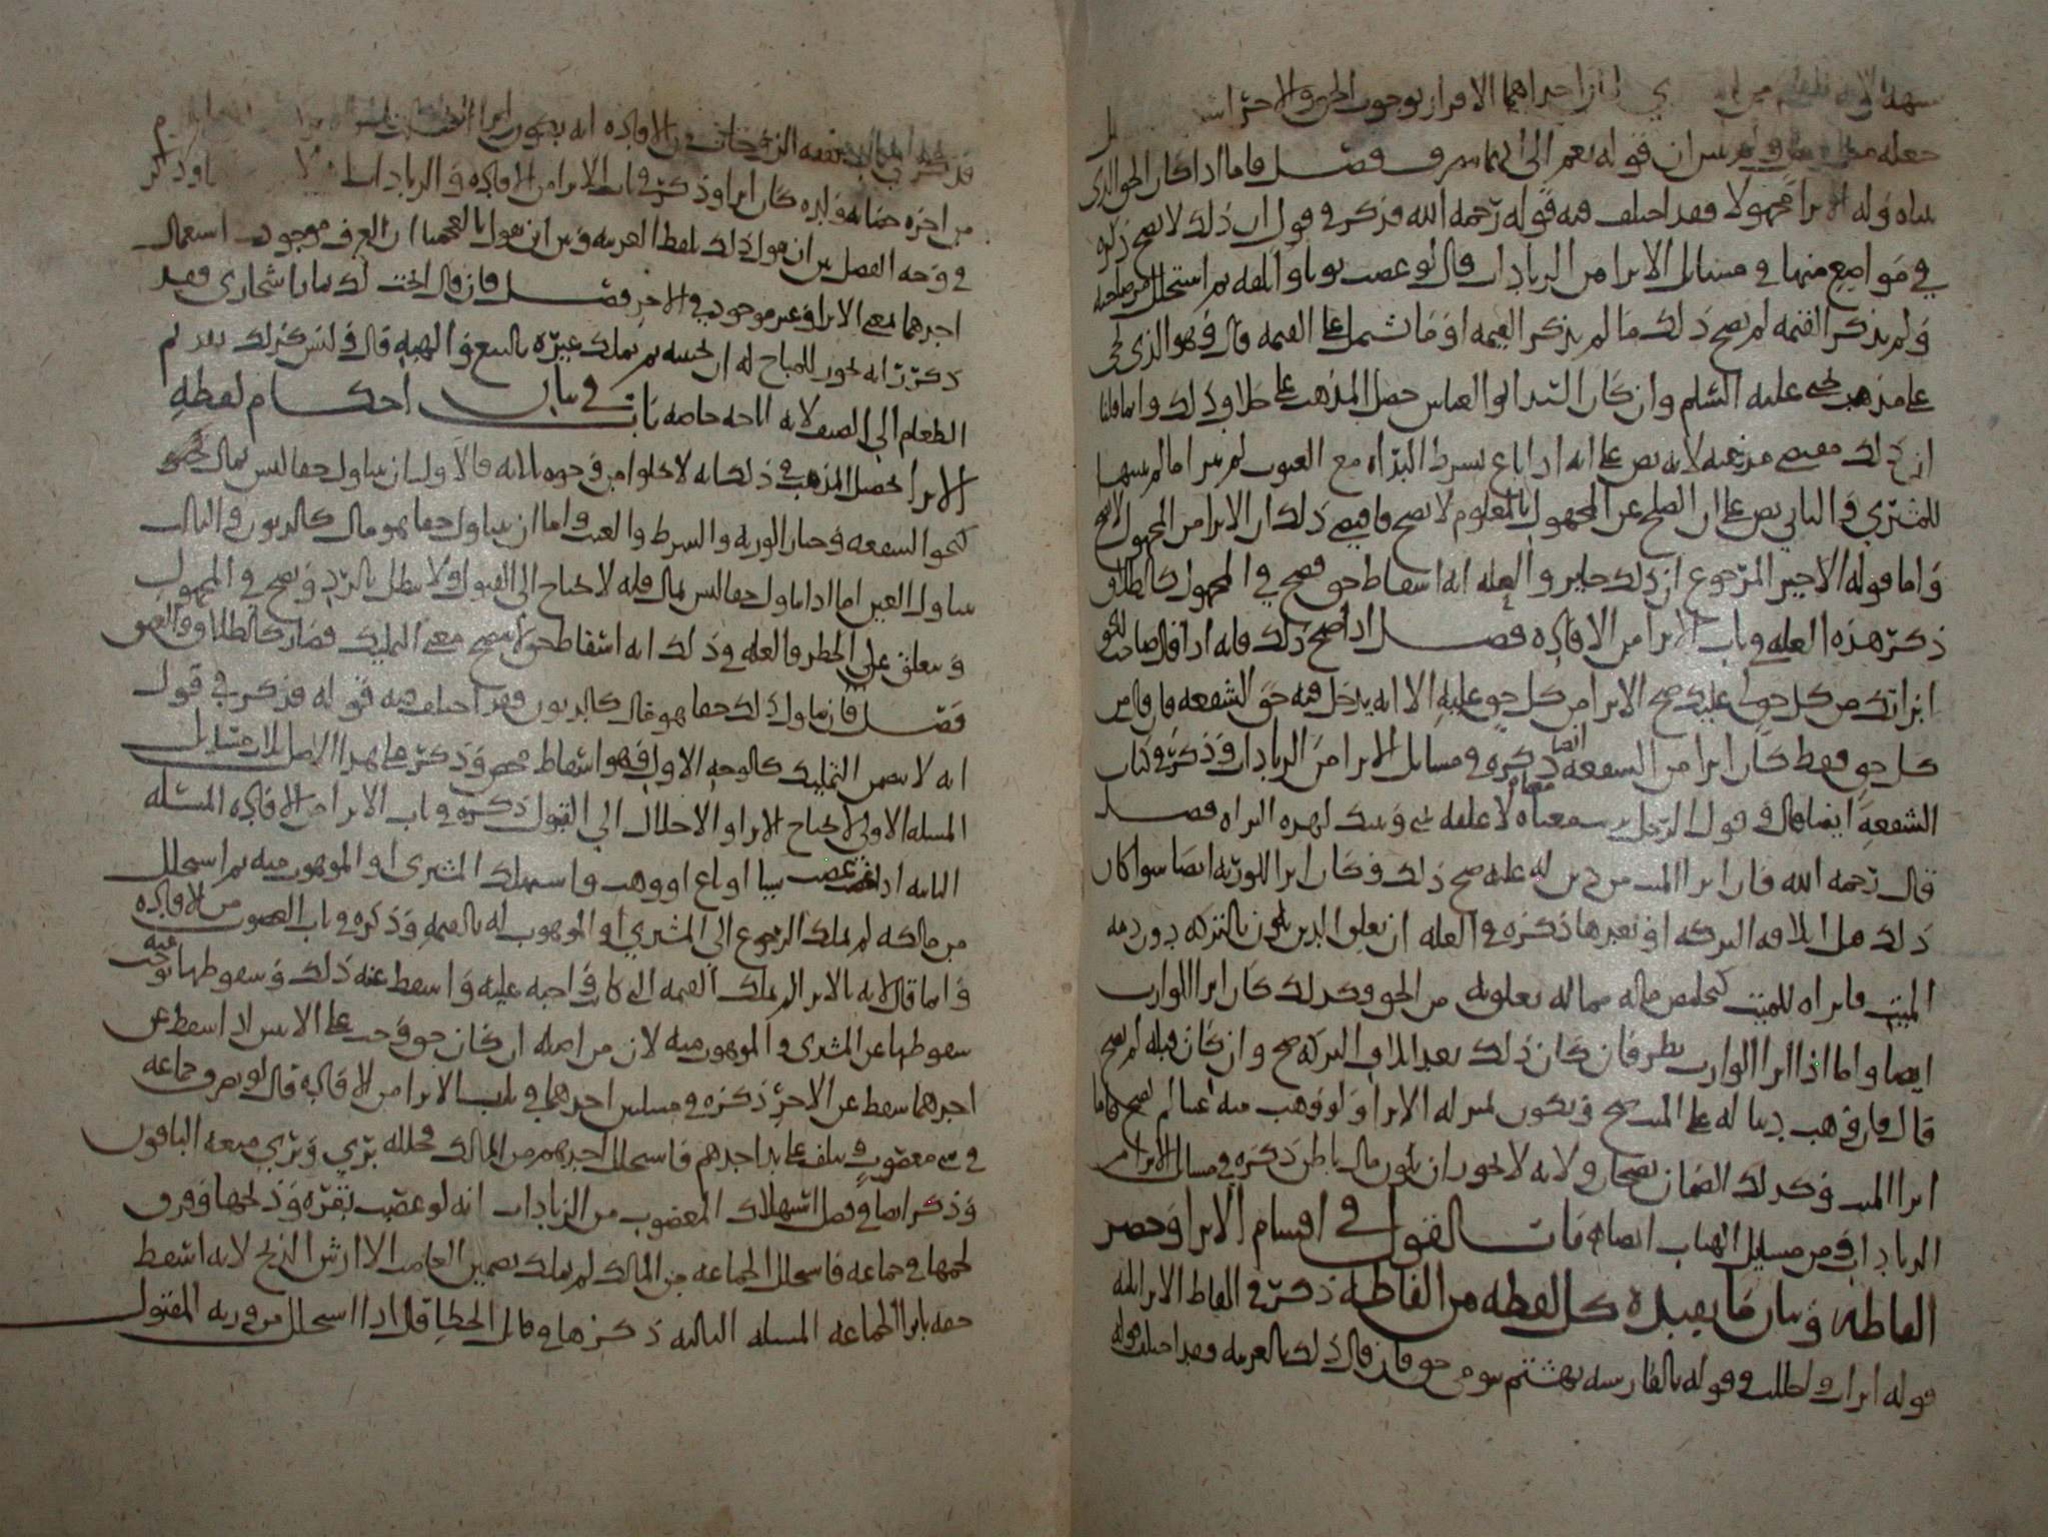 احداهما الاقرار بوجوب الحق والاخر اسـ
جعله ان قوله نعم الى فصل فاما اذا كان الحق الذي
تناوله الابرا مجهولا فقد اختلف فيه قوله رحمه الله فذكر في قول ان ذلك لا يصح ذكره
في مواضع منها في مسائل الابرا من الزيادات قال لو غصب ثوبا واتلفه ثم استحل من صاحبه
ولم يذكر القيمة لم يصح ذلك ما لم يذكر القيمة او ما تشمل على القيمة قال وهو الذي يجي
على مذهب يحيى عليه السلم وان كان السيد ابو العباس حصل المذهب على خلاف ذلك وانما قلنا
ان ذلك مقتضى مذهبه لانه نص على انه اذا باع بشرط البراه من العيوب لم يبرا ما لم يبينها
للمشتري والثاني نص على ان الصلح عن المجهول بالمعلوم لا يصح فاقتضى ذلك ان الابرا من المجهول لا يصح
واما قوله الاخير المرجوع ان ذلك جايز والعلة انه اسقاط حق فصح في المجهول كالطلاق
ذكر هذه العلة في باب الابرا من الافادة فصل اذا صح ذلك فانه اذا قال صاحب الحق
ابراتك من كل حق لي عليك صح الابرا من كل حق عليه الا انه يدخل فيه حق الشفعة فان قال من
كل حق فقط كان ابرا من الشفعة ايضا ذكره في مسائل الابرا من الزيادات وذكره في كتاب
الشفعة ايضا فقال في قول الرجل لا علقة بيني وبينك لهذه البراه فصل
قال رحمه الله فان ابرا الميت من دين له عليه صح ذلك وكان ابرا للورثة ايضا سوا كان
ذلك قبل اتلافه التركة او بعدها ذكره في العلة ان تعلق الدين يكون بالتركة دون ذمة
الميت فابراه للميت تخلص ماله مما له تعلق به من الحق وكذلك كان ابرا للوارث
ايضا واما اذا ابرا الوارث نظر فان كان ذلك بعد اتلاف التركة صح وان كان قبله لم يصح
قال فان وهب دينا له على الميت صح ويكون بمنزلة الابرا ولو وهب منه عينا لم يصح كما
ابرا الميت وكذلك الضمان يصح ولانه لا يجوز ان يكون مال باطن ذكره في مسائل الابرا من
الزيادات ومن مسايل الهبات ايضا باب القول في اقسام الابرا وحصر
الفاظه وبيان ما يفيده كل لفظة من الفاظه ذكر في الفاظ الابرا ثلثة
قوله ابرات واحللت وقوله بالفارسية بهشتم حق فان قال ذلك بالعربية فقد اختلف قوله
قد ذكر في نفقة الزوجات من الافادة انه يكون ابرا
من اجرة حضانة ولده كان ابرا وذكر في باب الابرا من الافادة والزيادات وذكر
في وجه الفصل بين ان يقول ذلك بلفظ العربية وبين ان يقول بالعجمية ان العرف موجود في استعمال
احدهما بمعنى الابرا وغير موجود في الاخر فصل فان قال ابحت لك ثمار اشجاري فقد
ذكر انه يجوز للمباح له ان يجنيه ثم يملك غيره بالبيع والهبة قال وليس كذلك تقديم
الطعام الى الضيف لانه اباحة خاصة باب في بيان احكام لفظة
الابرا تحصيل المذهب في ذلك انه لا يخلوا من وجوه ثلاثة فالاول ان يتناول حقا ليس بمال محض
كنحو الشفعة وخيار الروية والشرط والعيب واما ان يتناول حقا هو مال كالديون والثالث
يتناول العين اما اذا تناول حقا ليس بمال فانه لا يحتاج الى القبول ولا يبطل بالرد ويصح في المجهول
وتعلق على الخطر والعلة في ذلك انه اسقاط حق لا يتضمن معنى التمليك فصار كالطلاق والعتق
فصل فان تناول ذلك حقا هو مال كالديون فقد اختلف فيه قوله فذكر في قول
انه لا يتضمن التمليك كالوجه الاول فهو اسقاط محض وذكر على هذا الاصل ثلاث مسايل
المسلة الاولى لا يحتاج الابرا والاحلال الى القبول ذكره في باب الابرا من الافادة المسئلة
الثانية اذا غصب شيا او باع او وهب واستهلك المشتري او الموهوب منه ثم استحل
من مالكه لم يملك الرجوع الى المشتري او الموهوب له بالقيمة وذكره في باب الغصوب من الافادة
وانما قال لانه بالابرا لم يملك القيمة التي كانت واجبة عليه واسقط عنه ذلك وسقوطها عنه يوجب
سقوطها عن المشتري والموهوب منه لان من اصله ان كان حق وجب على الاثنين اذا اسقط عن
احدهما سقط عن الاخر ذكره في مسلتين احدهما في باب الابرا من الافادة قال لو تصرف جماعة
في شي مغصوب وتلف على يد احدهم فاستحل احدهم من المالك فحلله بري وبري معه الباقون
وذكر ايضا في فصل استهلاك المغصوب من الزيادات انه لو غصب بقرة وذبحها وفرق
لحمها في جماعة فاستحل الجماعة من المالك لم يملك تضمين الغاصب الا ارش الذبح لانه اسقط
حقه بابرا الجماعة المسلة الثالثة ذكرها في قاتل الخطا قال اذا استحل من ورثة المقتول